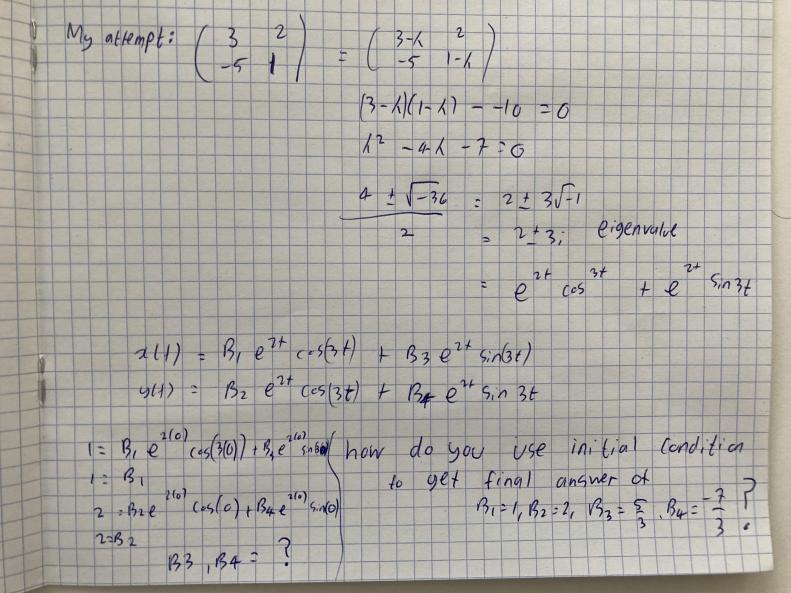 My attempt: ( 3 2 -5 1 ) = ( 3-λ 2 -5 1-λ )
(3-λ)(1-λ) - -10 = 0
λ² - 4λ - 7 = 0
4 ± √-36 / 2 = 2 ± 3√-1
= 2 ± 3i eigenvalue
= e^2t cos 3t + e^2t sin 3t
x(t) = B1 e^2t cos(3t) + B3 e^2t sin(3t)
y(t) = B2 e^2t cos(3t) + B4 e^2t sin 3t
1 = B1 e^2(0) cos(3(0)) + B3 e^2(0) sin(0)
1 = B1
2 = B2 e^2(0) cos(0) + B4 e^2(0) sin(0)
2 = B2
B3, B4 = ?
how do you use initial condition
to get final answer of
B1 = 1, B2 = 2, B3 = 5/3, B4 = -7/3 ?